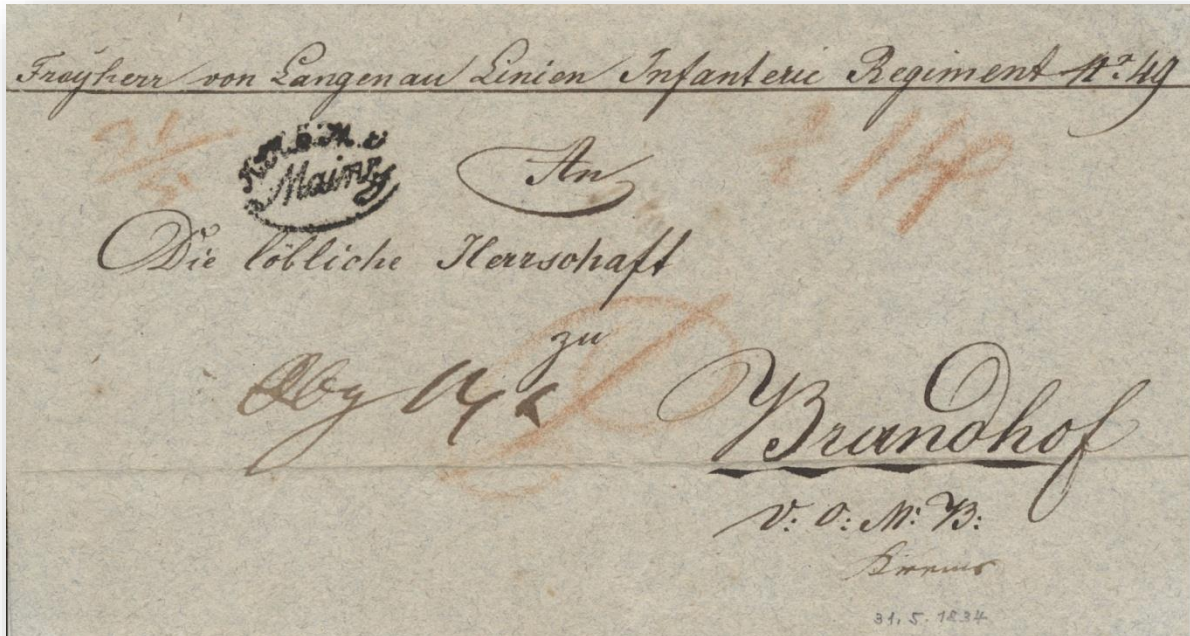 Freyherr von Langenau Linien Infanterie Regiment No 49
Mainz
An
Die löbliche Herrschaft
zu
Brandhof
V: O: M: B:
Krems
31. 5. 1834